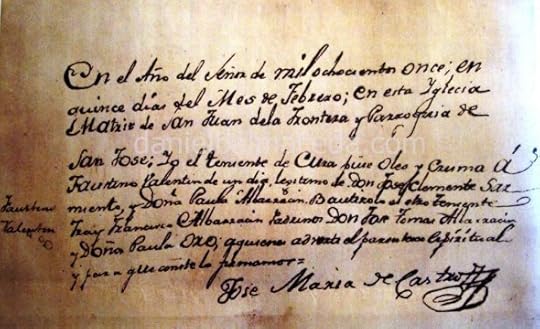 En el Año del Señor de mil ochocientos once; en
quince dias del Mes de Febrero; en esta Yglecia
Matriz de San Juan dela Frontera y Parroquia de
San Jose; Yo el teniente de Cura puse Oleo y Crisma Á
Faustino Valentin de un dia, legitimo de Don Jose Clemente Sar
miento, y Doña Paula Albarracin. Bautizolo el otro teniente
Fray Francisco Albarracin Padrinos Don Jose Tomas Albarracin
y Doña Paula Oro; aquienes adverti el parentesco Espiritual
y para que conste lo firmamos=
Jose Maria de Castro
Faustino
Valentin